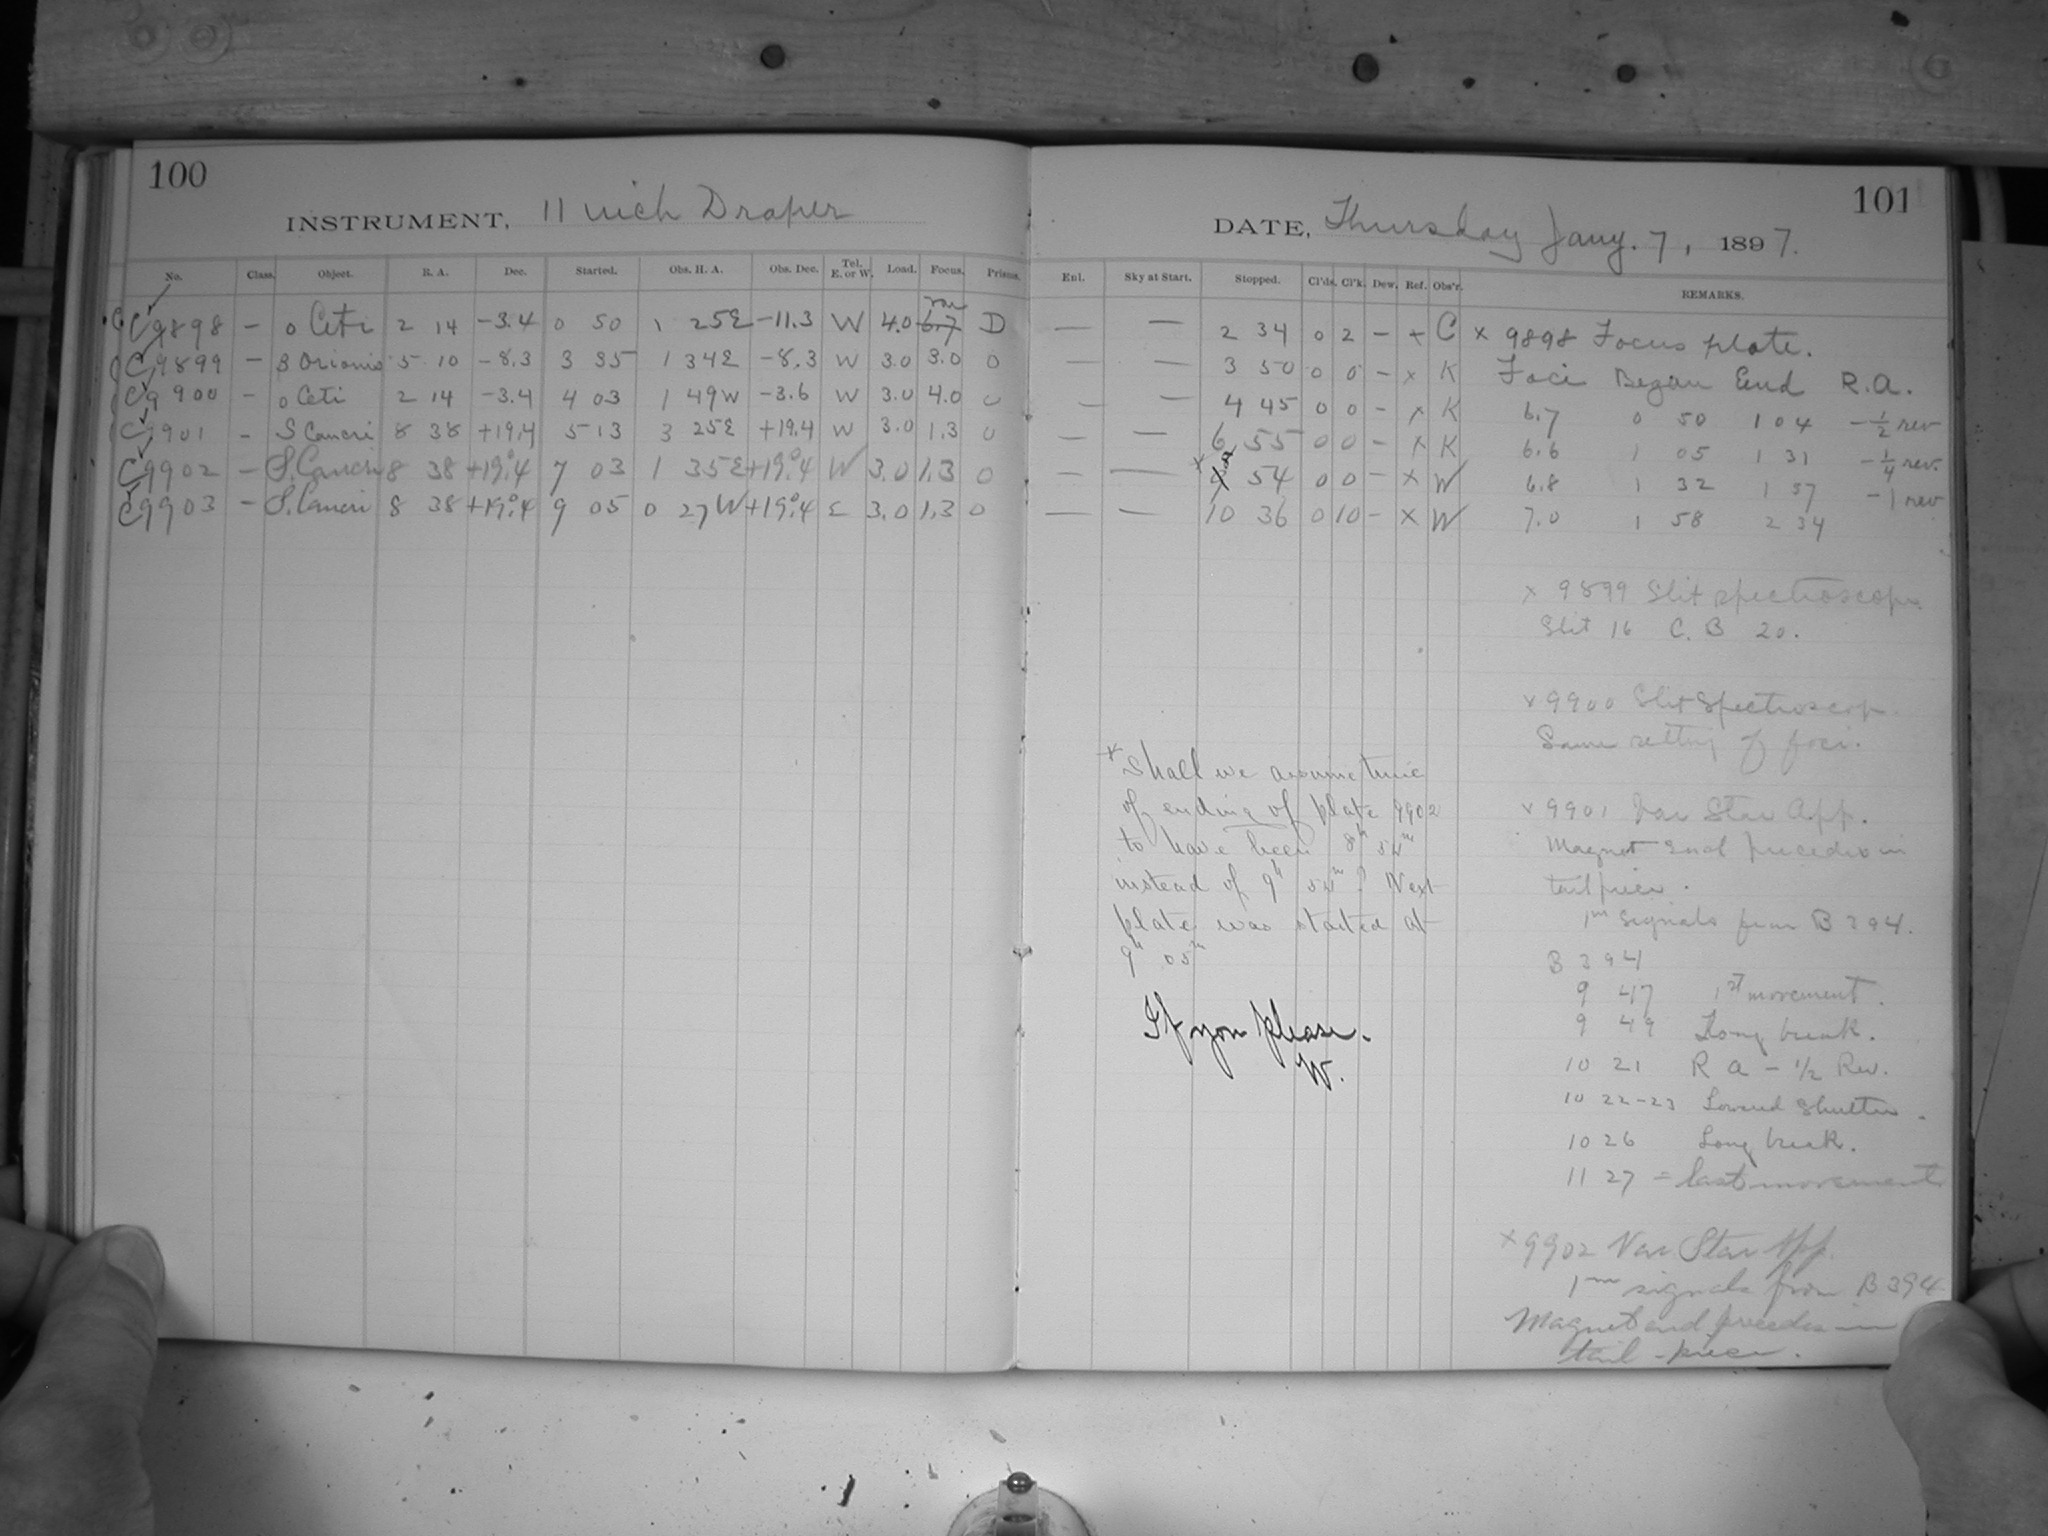 100
INSTRUMENT, 11 inch Draper
No. Class. Object. R. A. Dec. Started. Obs. H. A. Obs. Dec. Tel. E. or W. Load. Focus. Prisms.
var
C 9898 — o Ceti 2 14 -3.4 0 50 1 25E -11.3 W 4.0 6.7 D
C 9899 — B Orionis 5 10 -8.3 3 35 1 34E -8.3 W 3.0 3.0 0
C 9900 - o Ceti 2 14 -3.4 4 03 1 49W -3.6 W 3.0 4.0 0
C 9901 - S Cancri 8 38 +19.4 5 13 3 25E +19.4 W 3.0 1.3 0
C 9902 — S. Cancri 8 38 +19°.4 7 03 1 35E +19°.4 W 3.0 1.3 0
C 9903 — S. Cancri 8 38 +19°.4 9 05 0 27W +19°.4 E 3.0 1.3 0
101
DATE, Thursday Jany. 7, 1897.
Enl. Sky at Start. Stopped. Cl'ds. Cl'k. Dew. Ref. Obs'r. REMARKS.
— — 2 34 0 2 - + C x 9898 Focus plate.
— — 3 50 0 0 - x K Foci Began End R.A.
— — 4 45 0 0 - x K 6.7 0 50 1 04 -1/2 rev
— — 6 55 0 0 - x K 6.6 1 05 1 31 -1/4 rev.
— — x 54 0 0 - x W 6.8 1 32 1 57 -1 rev
— — 10 36 0 10 - x W 7.0 1 58 2 34
x 9899 Slit spectroscope
Slit 16 C. B 20.
x 9900 Slit Spectroscop
Same setting of foci.
x Shall we assume time
of ending of plate 9902
to have been 8h 54m
instead of 9h 54m? Next
plate was started at
9h 05m
If you please.
W.
x 9901 Var Star App.
Magnet end precedes in
tail piece.
1m signals from B 394.
B 394
9 47 1st movement.
9 49 Long break.
10 21 R A - 1/2 Rev.
10 22-23 Lowered Shutter.
10 26 Long break.
11 27 = last movement
x 9902 Var Star App.
1m signals from B 394
Magnet end precedes in
tail-piece.